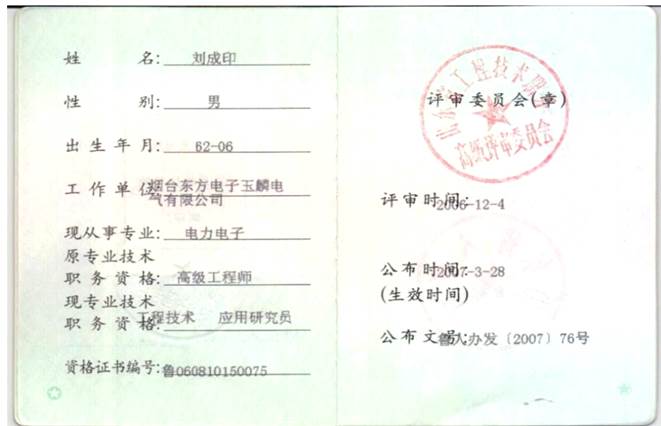 姓 名: 刘成印
性 别: 男
出生年月: 62-06
工作单位: 烟台东方电子玉麟电
气有限公司
现从事专业: 电力电子
原专业技术
职务资格: 高级工程师
现专业技术
职务资格: 工程技术 应用研究员
资格证书编号: 鲁060810150075
评审委员会(章)
高级评审委员会
评审时间: 2006-12-4
公布时间: 2007-3-28
(生效时间)
公布文号: 鲁人办发〔2007〕76号